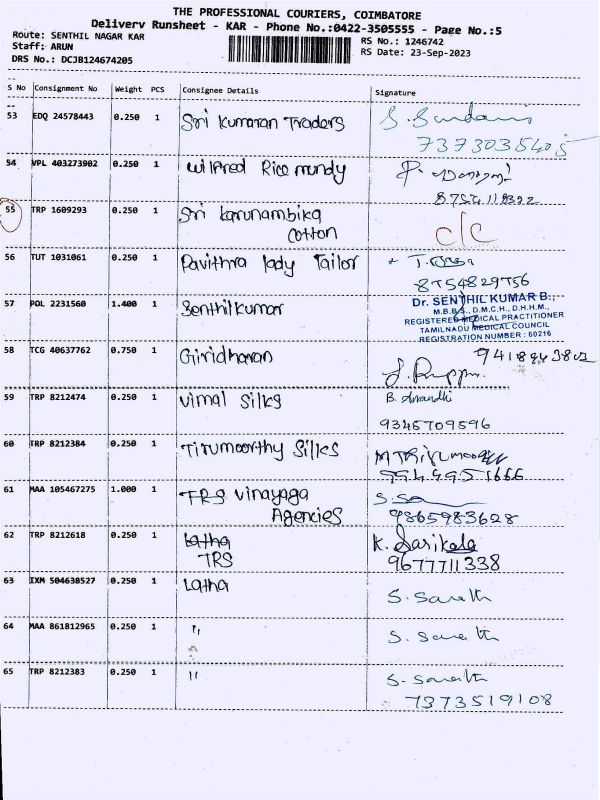 THE PROFESSIONAL COURIERS, COIMBATORE
Delivery Runsheet - KAR - Phone No.:0422-3505555 - Page No.:5
Route: SENTHIL NAGAR KAR
RS No.: 1246742
Staff: ARUN
RS Date: 23-Sep-2023
DRS No.: DCJB124674205
S No Consignment No Weight PCS Consignee Details Signature
53 EDQ 24578443 0.250 1 Sri Kumaran Traders
7373035405
54 VPL 403273902 0.250 1 Wilfred Rice mundy
55 TRP 1609293 0.250 1 Sri Karunambika
cotton c/c
56 TUT 1031061 0.250 1 Pavithra lady Tailor
8754829756
57 POL 2231560 1.400 1 Senthilkumar
Dr. SENTHIL KUMAR B.,
M.B.B.S., D.M.C.H., D.H.H.M.,
REGISTERED MEDICAL PRACTITIONER
TAMILNADU MEDICAL COUNCIL
REGISTRATION NUMBER : 60216
58 TCG 40637762 0.750 1 Giridharan
59 TRP 8212474 0.250 1 Vimal Silks B. Anandhi
9345709596
60 TRP 8212384 0.250 1 Tirumoorthy Silks
9944951666
61 MAA 105467275 1.000 1 TRS Vinayaga
Agencies 9865983628
62 TRP 8212618 0.250 1 Latha K. Sarikala
TRS 9677711338
63 IXM 504638527 0.250 1 Latha S. Sarath
64 MAA 861812965 0.250 1 " S. Sarath
65 TRP 8212383 0.250 1 " S. Sarath
7373519108